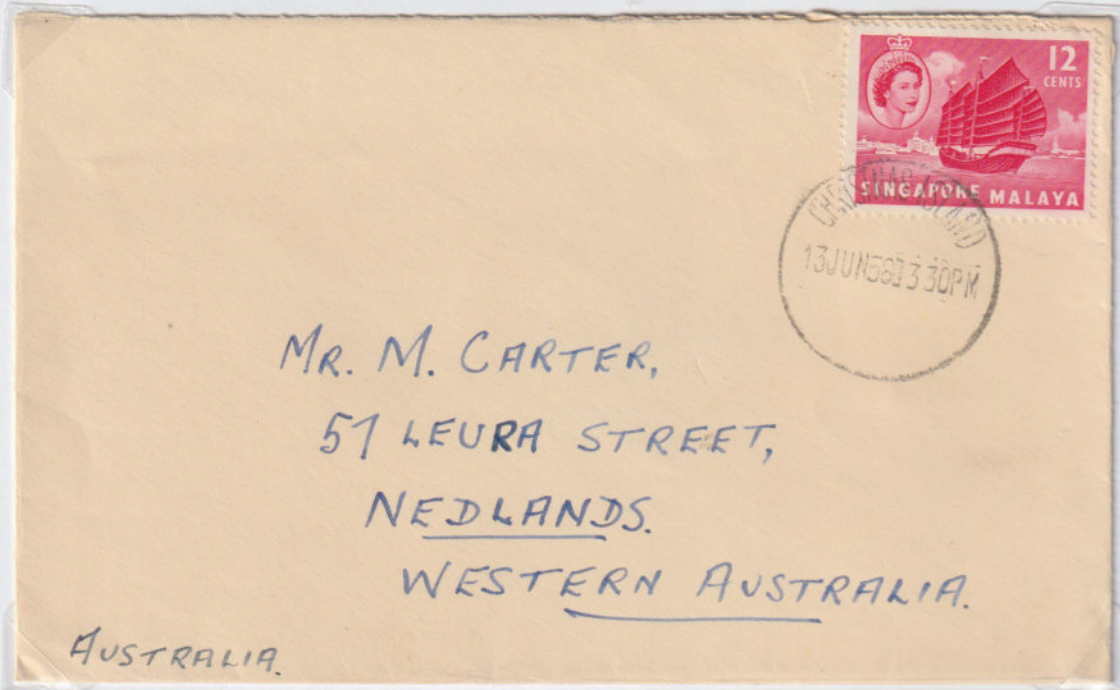 12
CENTS
SINGAPORE MALAYA
CHRISTMAS ISLAND
13 JUN 58 3 30PM
MR. M. CARTER,
57 LEURA STREET,
NEDLANDS.
WESTERN AUSTRALIA.
AUSTRALIA.